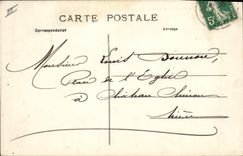 CARTE POSTALE
Correspondance
Adresse
5
Monsieur Louis
Place de l'Eglise
à Château Chinon
Nièvre